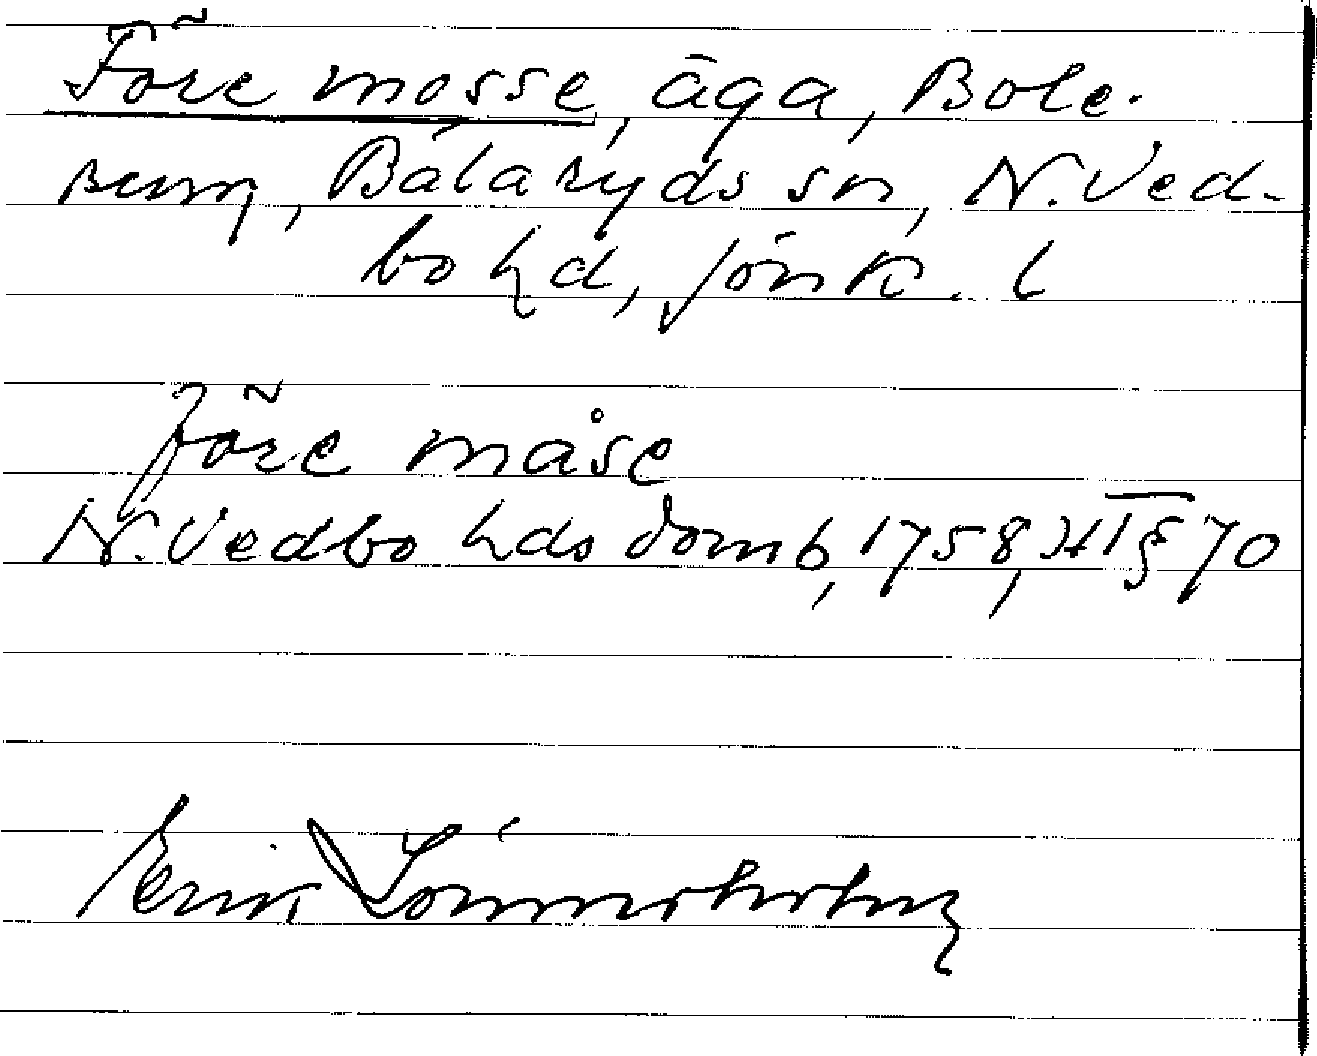 Före mosse, äga, Bole-
rum, Bälaryds sn, N. Ved-
bo hd, Jönk. l
före måse
N. Vedbo hds domb, 1758, HT § 70
Erik Lönnerholm